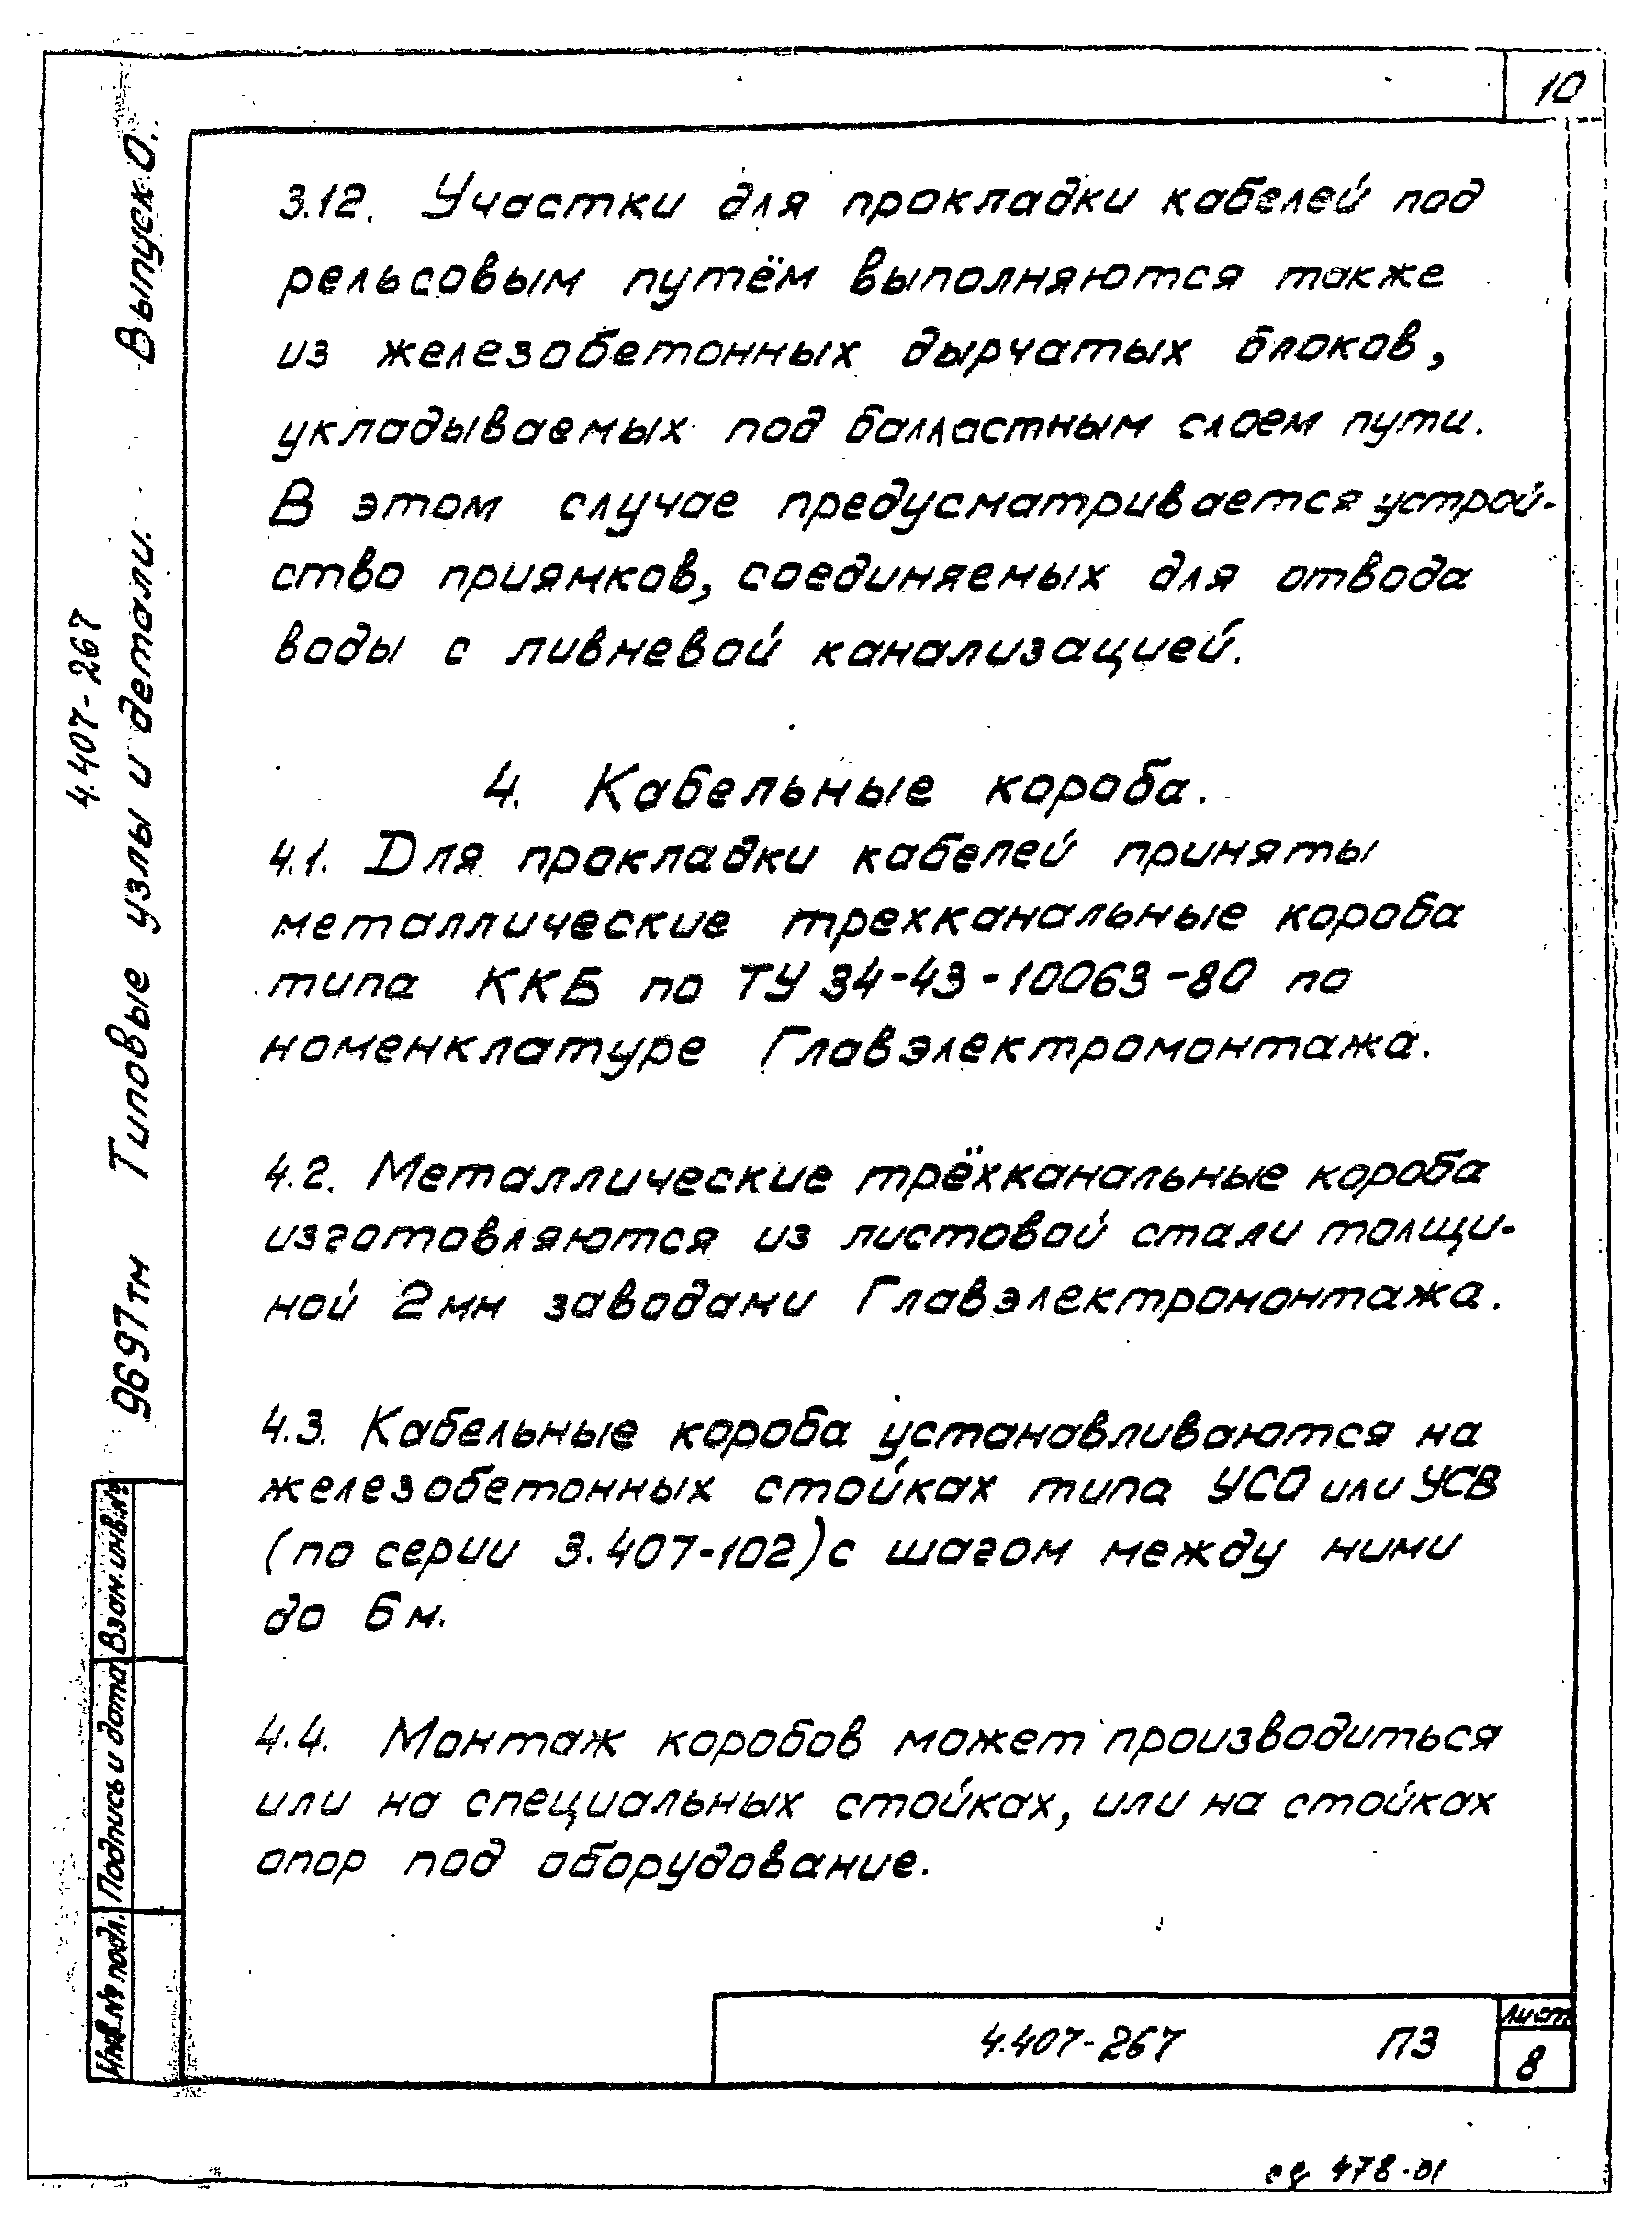 10
3.12. Участки для прокладки кабелей под
рельсовым путём выполняются также
из железобетонных дырчатых блоков,
укладываемых под балластным слоем пути.
В этом случае предусматривается устрой-
ство приямков, соединяемых для отвода
воды с ливневой канализацией.
4. Кабельные короба.
4.1. Для прокладки кабелей приняты
металлические трехканальные короба
типа ККБ по ТУ 34-43-10063-80 по
номенклатуре Главэлектромонтажа.
4.2. Металлические трёхканальные короба
изготовляются из листовой стали толщи-
ной 2мм заводами Главэлектромонтажа.
4.3. Кабельные короба устанавливаются на
железобетонных стойках типа УСО или УСВ
(по серии 3.407-102) с шагом между ними
до 6 м.
4.4. Монтаж коробов может производиться
или на специальных стойках, или на стойках
опор под оборудование.
4.407-267
9697тм Типовые узлы и детали. Выпуск 0.
Взам. инв.№
Подпись и дата
Инв.№ подл.
4.407-267 ПЗ
Лист
8
478-01